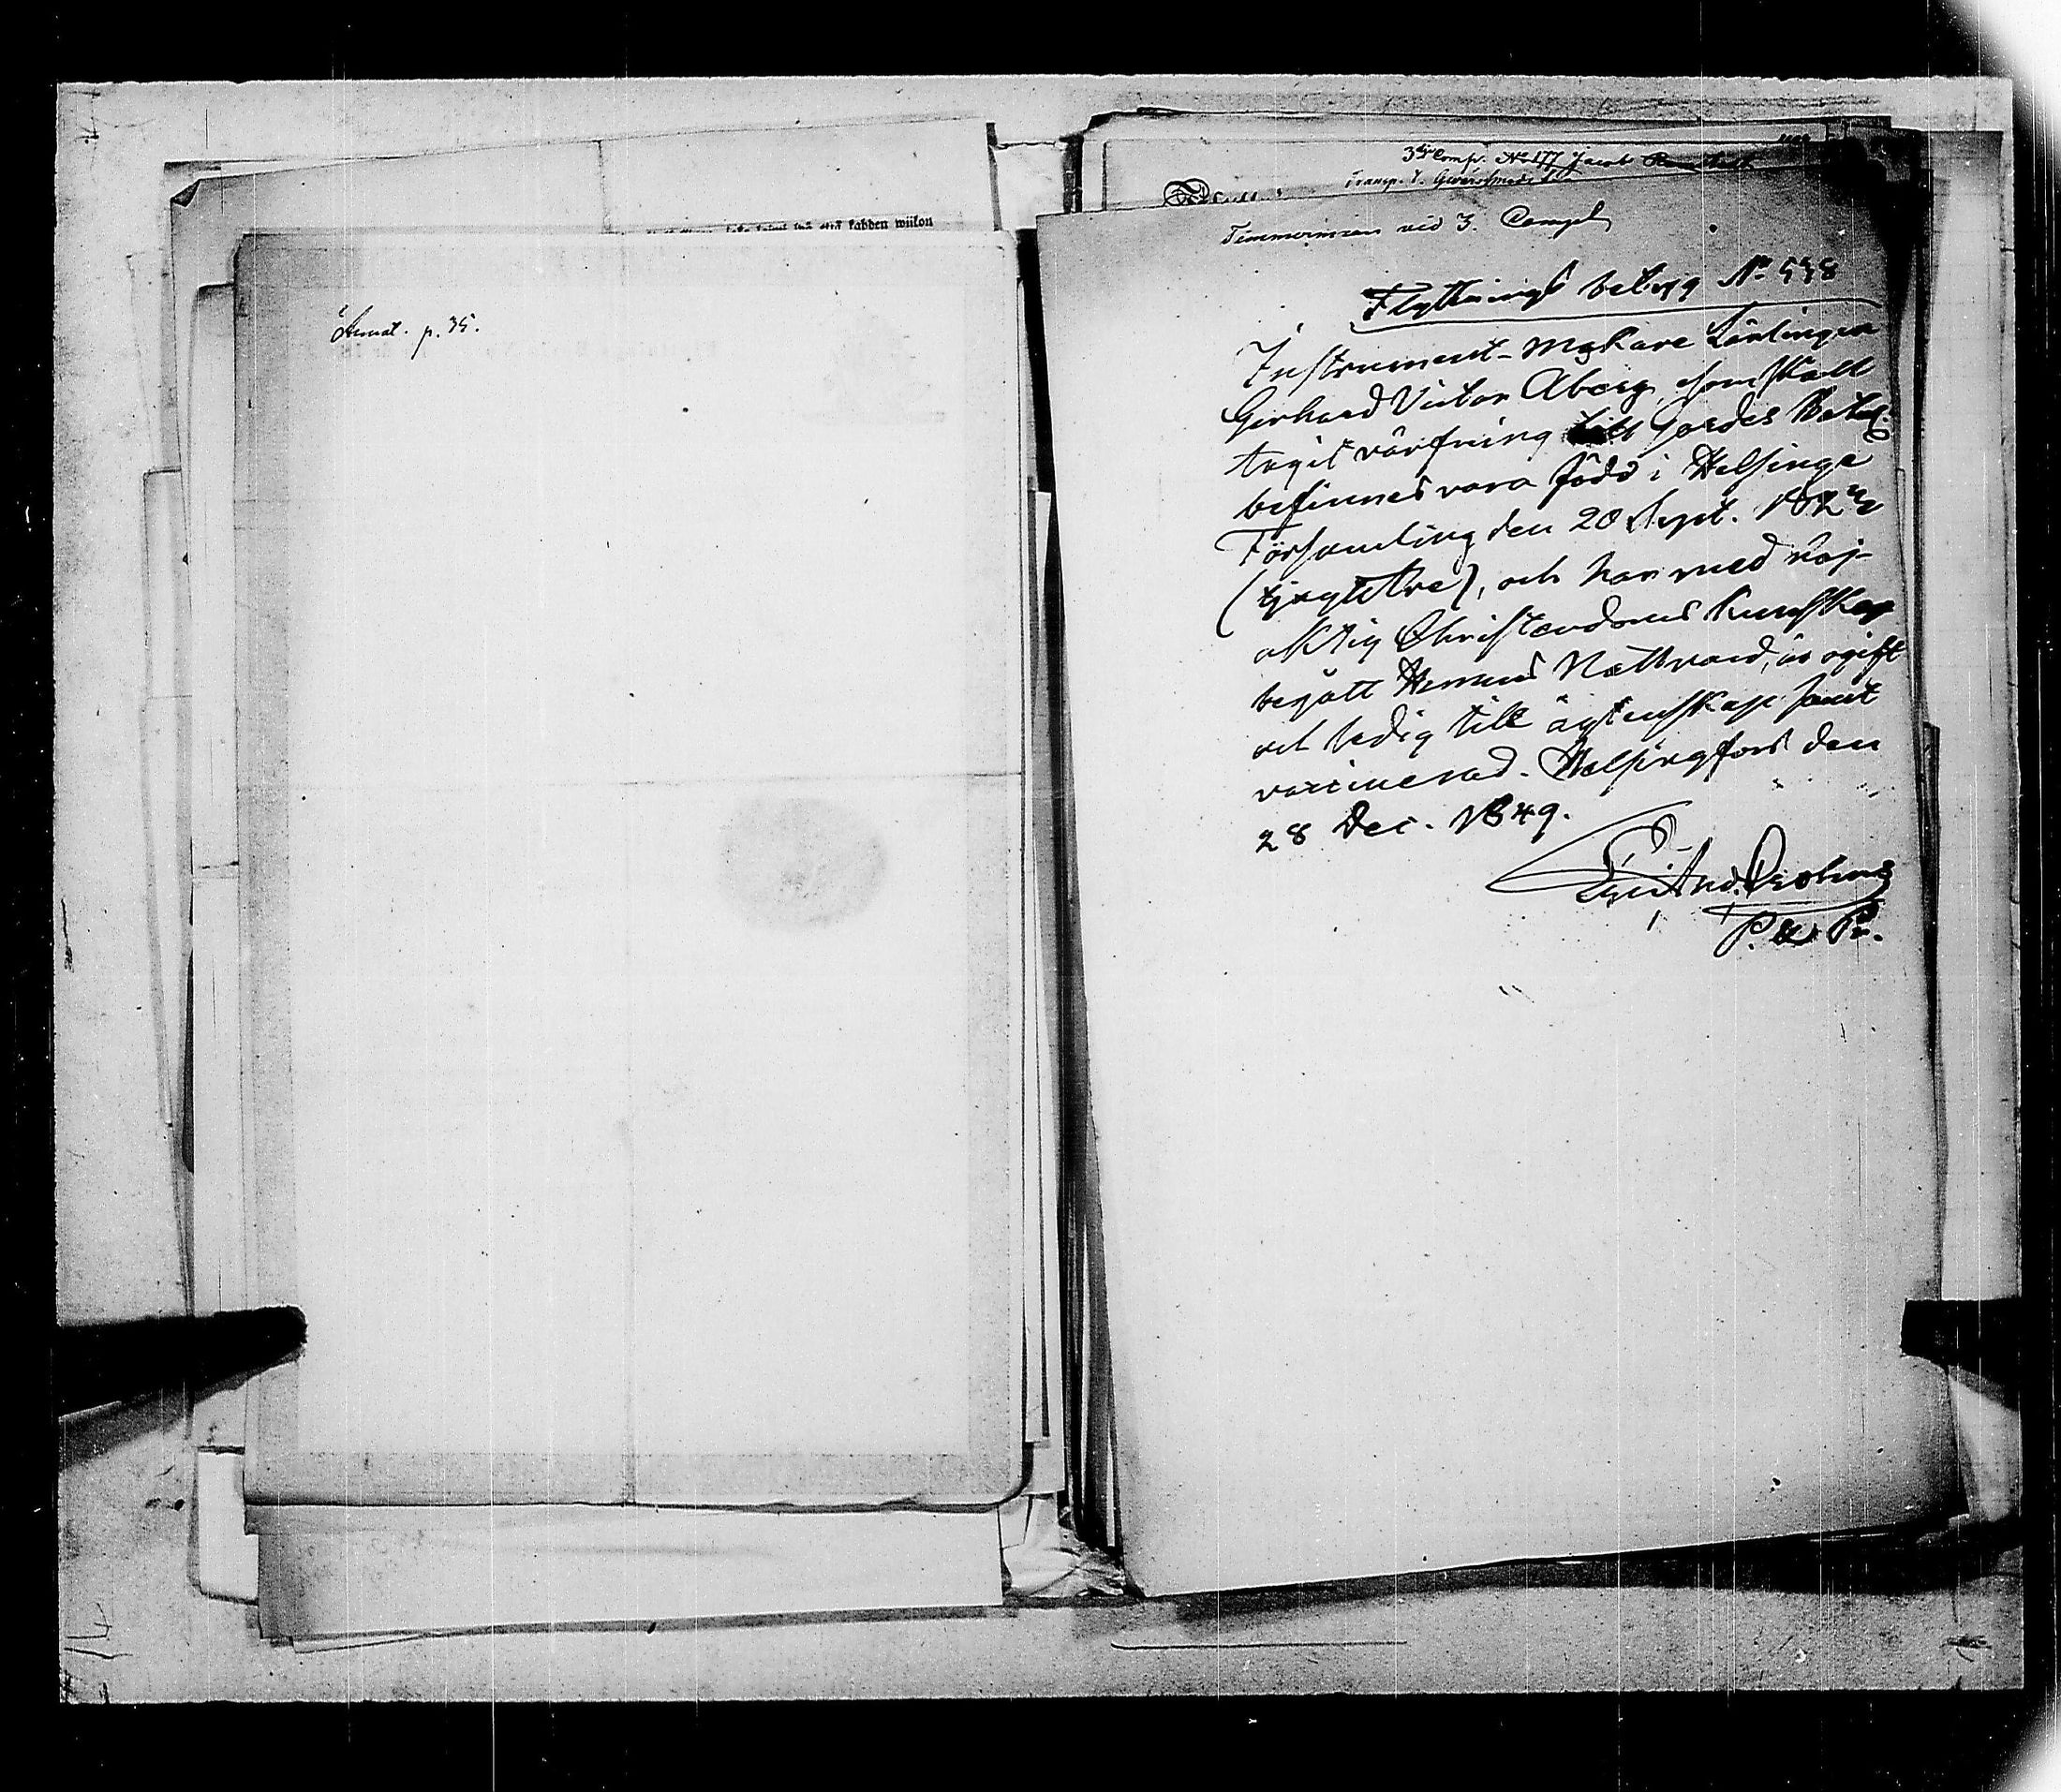 kabben wiikon
Annot. p. 35.
3dje Comp. No 177 Jacob
Transp. t. Gevärsmed
Timmerman vid 3. Comp.
Flyttnings betyg No 538
Instrument-Makare Lärlingen
Gerhard Victor Åberg, som skall
tagit värfning till Gardes Batal.
befinnes vara född i Helsinge
Församling den 20 Sept. 1823
(tjugutre), och har med nöj-
aktig Christendoms kunskap
begått Herrans Nattvard, är ogift
och ledig till äktenskap samt
vaccinerad. Helsingfors den
28 Dec. 1849.
P. & Pr.